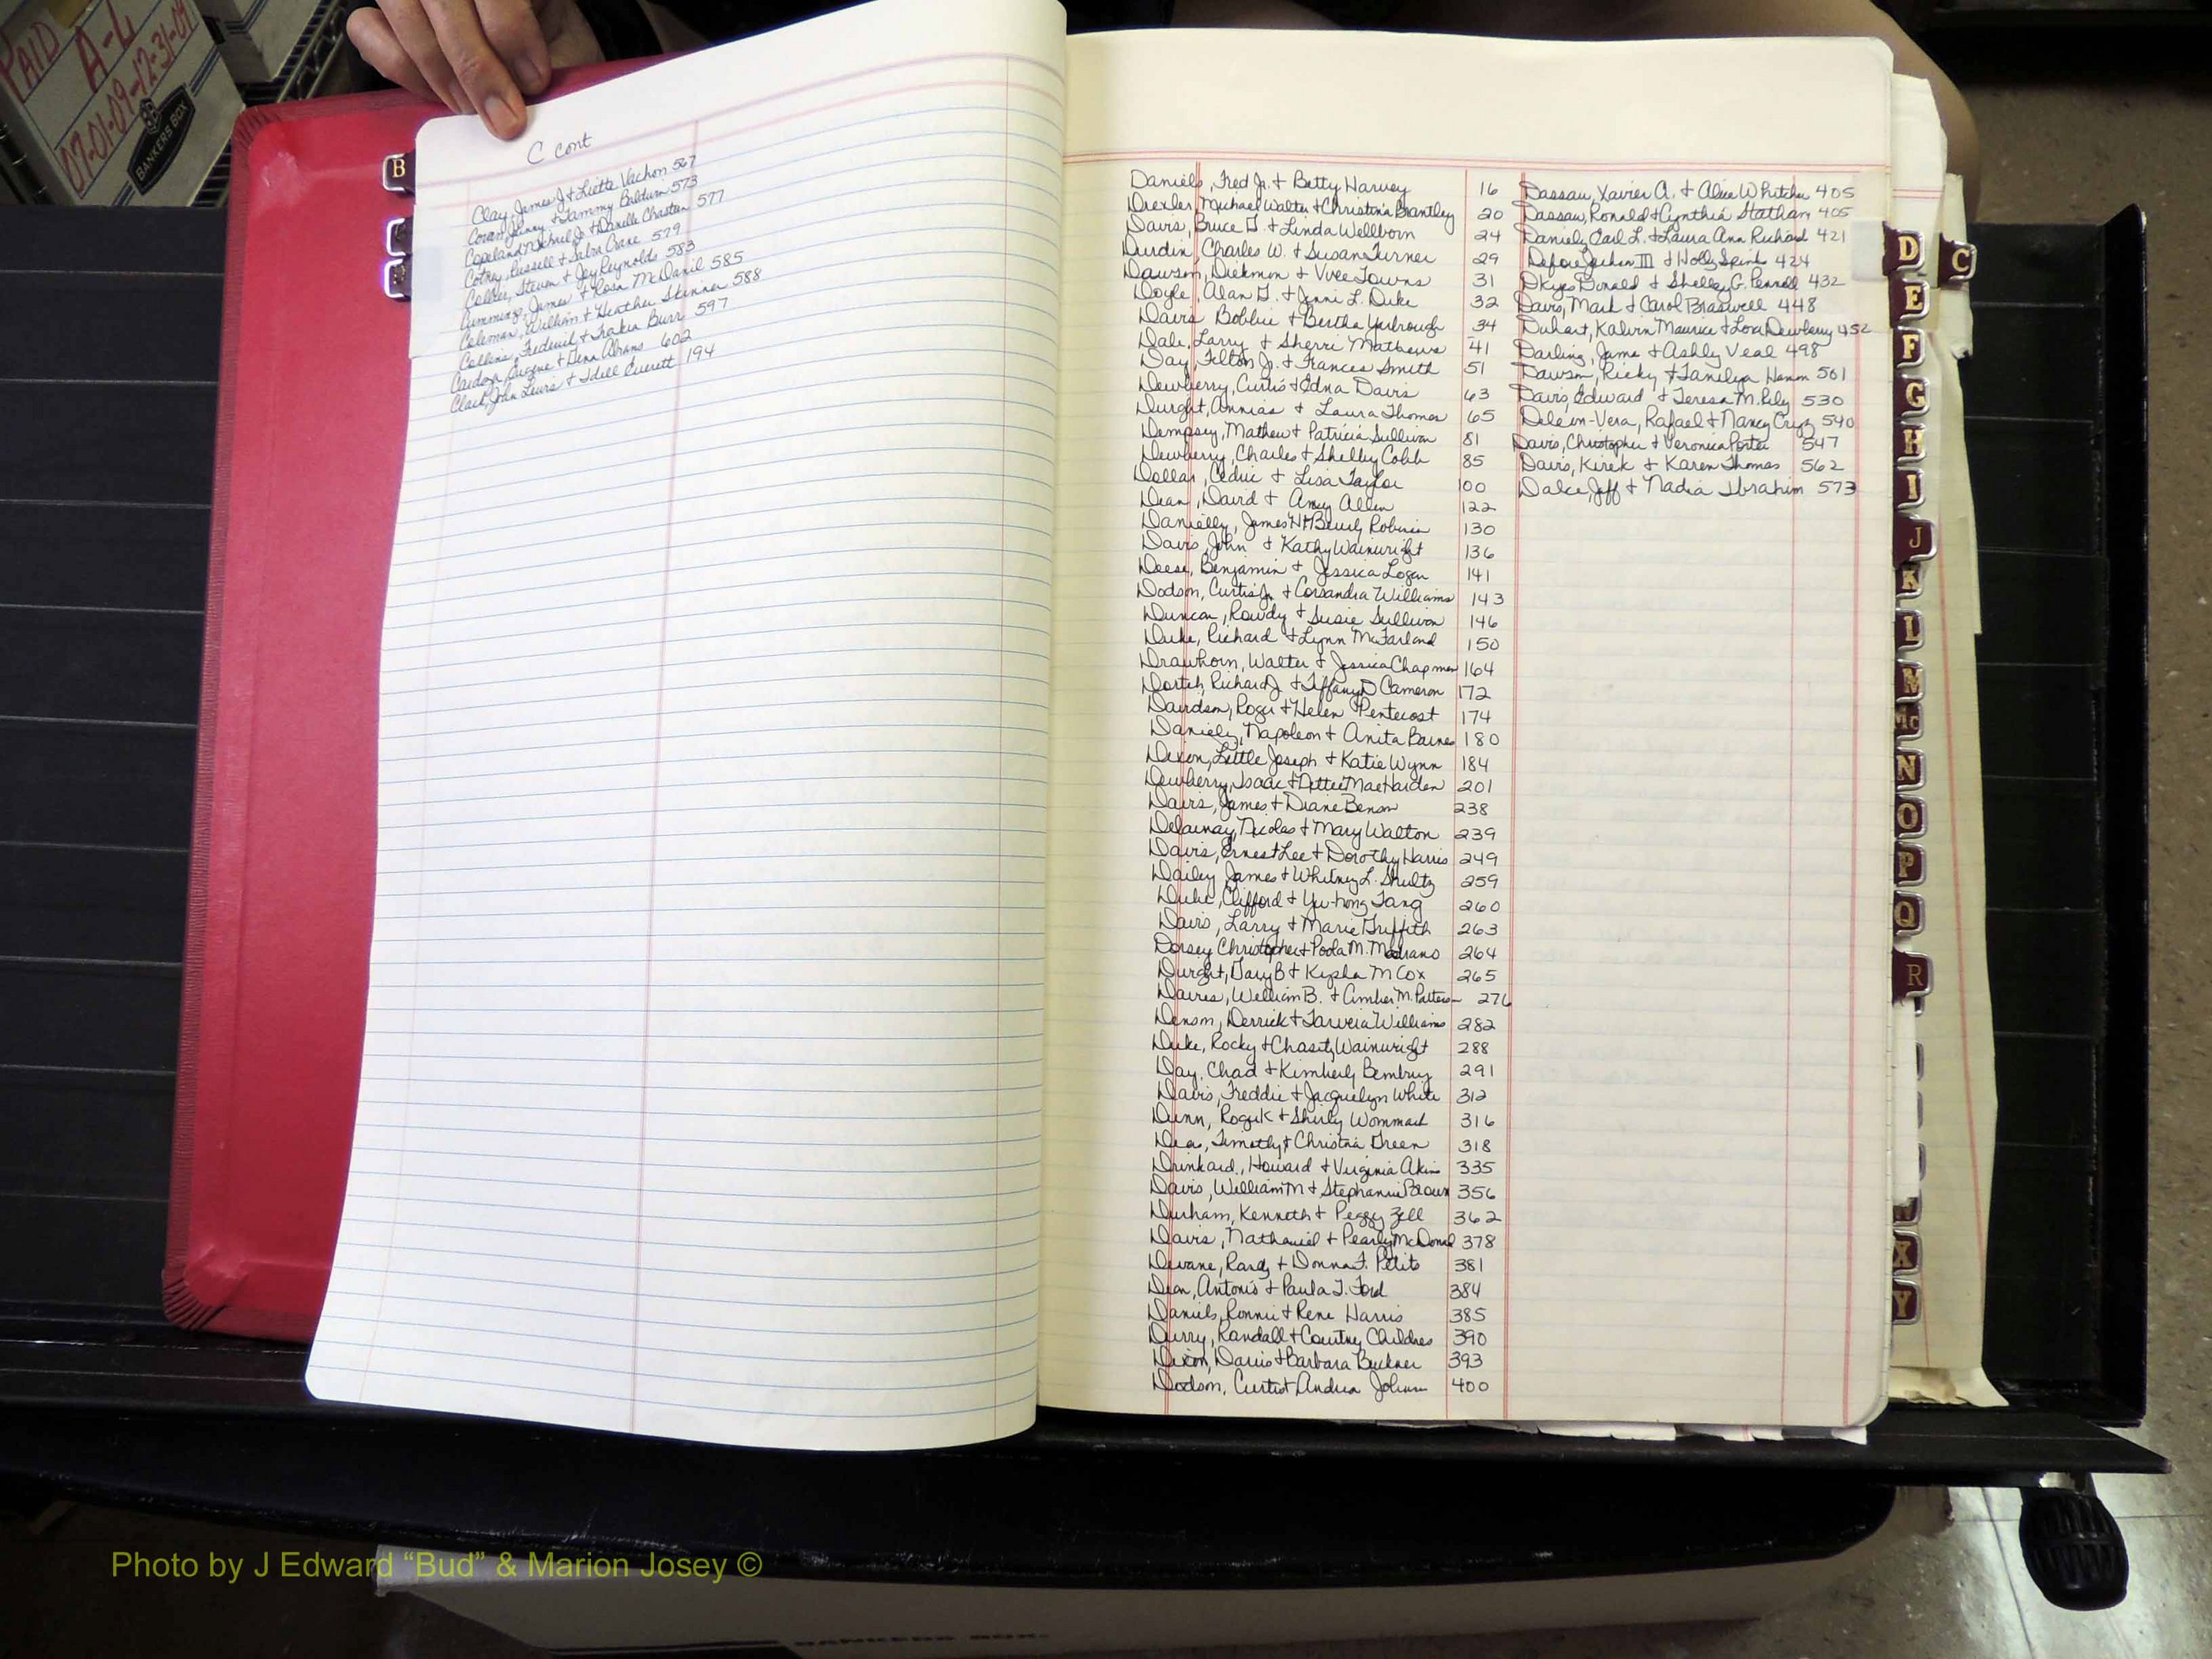 PAID
A-L
07-01-09-12-31-09
BANKERS BOX
B
C cont
Clay, James J & Liette Vachon 567
Coran, Jimmy & Tammy Baldwin 573
Copeland, Michael Jr & Danielle Chasteen 577
Cotney, Russell & Sabra Crane 579
Collier, Steven & Joy Reynolds 583
Cummings, James & Rosa McDanil 585
Coleman, William & Heather Skinner 588
Collins, Frederick & Burr 597
Cardoza, Eugene & Gena Abrams 602
Clark, John Lewis & Idell Everett 194
Daniels, Fred Jr. & Betty Harvey 16
Drexler, Michael Walter & Christina Brantley 20
Davis, Bruce G. & Linda Wellborn 24
Durdin, Charles W. & Susan Turner 29
Dawson, Diekmon & Towns 31
Doyle, Alan G. & Jenni L. Duke 32
Davis Bobbie & Bertha Yarbrough 34
Dale, Larry & Sherri Mathews 41
Day, Filton Jr. & Frances Smith 51
Dewberry, Curtis & Edna Davis 63
Dwight, Annias & Laura Thomas 65
Dempsey, Mathew & Patricia Sullivan 81
Dewberry, Charles & Shelley Cobb 85
Dollar, Cedric & Lisa Taylor 100
Dean, David & Amy Allen 122
Danielly, James H & Beverly Robinson 130
Davis, John & Kathy Wainwright 136
Deese, Benjamin & Jessica Logan 141
Dodson, Curtis Jr. & Corsandra Williams 143
Duncan, Rowdy & Susie Sullivan 146
Duke, Richard & Lynn McFarland 150
Drawhorn, Walter & Jessica Chapman 164
Dortch, Richard J. & Tiffany D Cameron 172
Davidson, Roger & Helen Pentecost 174
Daniely, Napoleon & Anita Baines 180
Dixon, Little Joseph & Katie Wynn 184
Dewberry, Isaac & Dettie Mae Harden 201
Davis, James & Diane Benson 238
Delaunay, Nicolas & Mary Walton 239
Davis, Ernest Lee & Dorothy Harris 249
Dailey James & Whitney L. Shultz 259
Duke, Clifford & Yu-hong Tang 260
Davis, Larry & Marie Griffith 263
Dorsey Christopher & Poola M. Medrano 264
Dwight, Gary B & Kysha M Cox 265
Davies, William B. & Amber M. Patterson 276
Denson, Derrick & Williams 282
Duke, Rocky & Chasity Wainwright 288
Day, Chad & Kimberly Bembry 291
Davis, Freddie & Jacquelyn White 312
Dunn, Roger K & Shirley Wommack 316
Deas, Timothy & Christina Green 318
Drinkard, Howard & Virginia Akins 335
Davis, William M & Stephanie Brown 356
Durham, Kenneth & Peggy Zell 362
Davis, Nathaniel & Pearly McDonal 378
Devane, Randy & Donna F. Petite 381
Dean, Antonio & Paula T. Ford 384
Daniels, Ronnie & Rene Harris 385
Durry, Randall & Courtney Childres 390
Dixon, Davis & Barbara Buckner 393
Dodson, Curtis & Andrea Johnson 400
Dassau, Xavier A. & Alice Whitcher 405
Dassau, Ronald & Cynthia Statham 405
Daniely, Carl L. & Laura Ann Richard 421
Defore, III & Holly Spinks 424
Dkyes Donald & Shelley G. Pennell 432
Davis, Mark & Carol Braswell 448
Duhart, Kalvin Maurice & Lora Dewberry 452
Darling, Jame & Ashly Veal 498
Dawson, Ricky & Hamm 501
Davis, Edward & Teresa M. Riley 530
Deleon-Vera, Rafael & Nancy Cruz 540
Davis, Christopher & Veronica Porter 547
Davis, Kirek & Karen Thomas 562
Dalce, Jeff & Nadia Ibrahim 573
D
C
E
F
G
H
I
J
K
L
M
Mc
N
O
P
Q
R
X
Y
Photo by J Edward “Bud” & Marion Josey ©